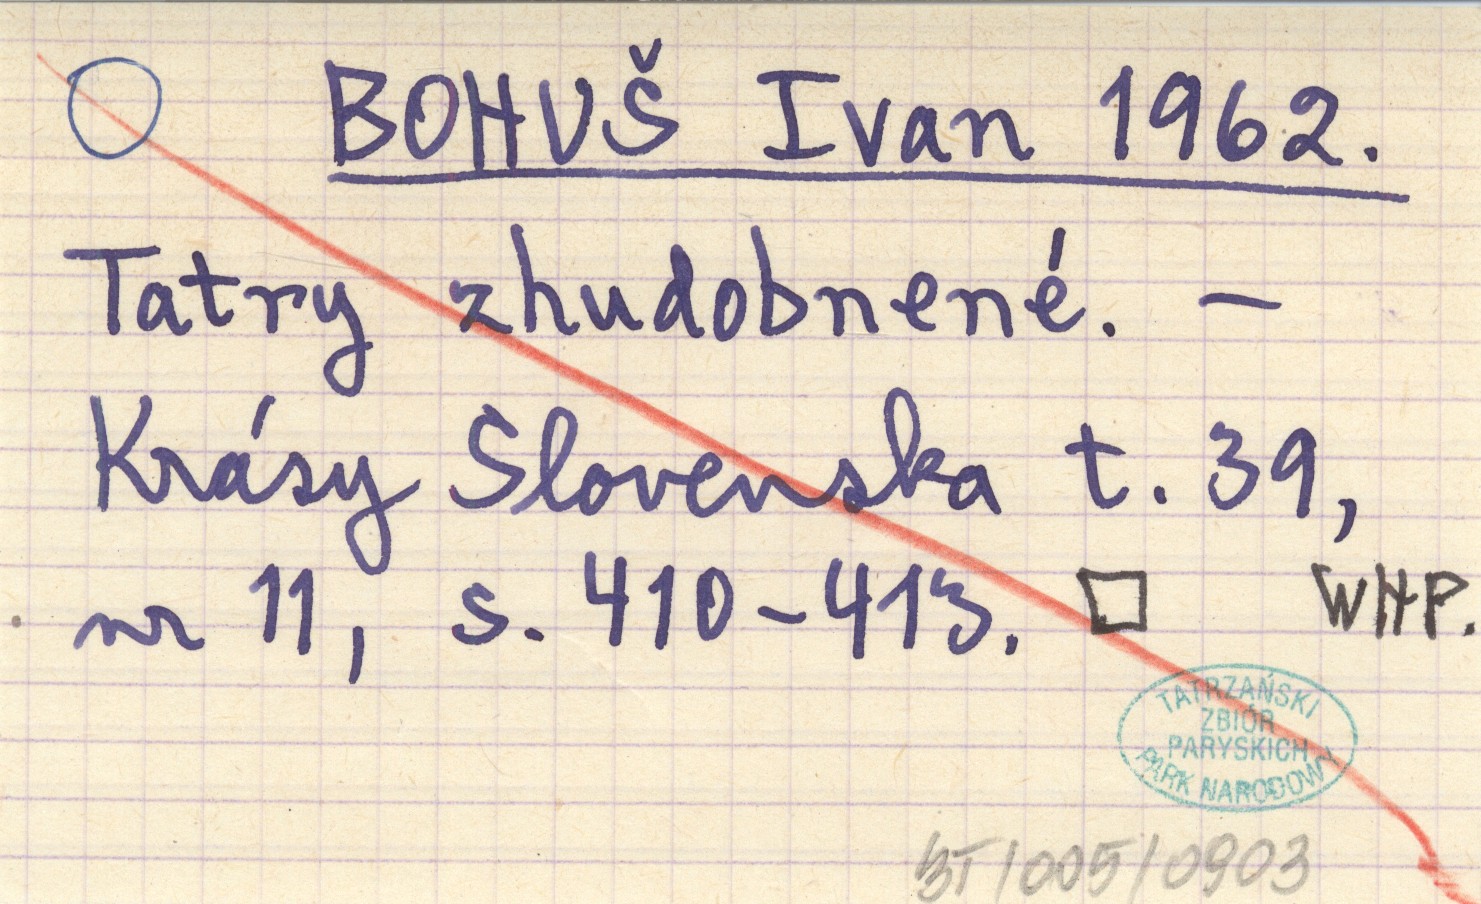 BOHUŠ Ivan 1962.
Tatry zhudobnené. –
Krásy Slovenska t. 39,
nr 11, s. 410-413. WHP.
TATRZAŃSKI
ZBIÓR
PARYSKICH
PARK NARODOWY
BT/005/0903